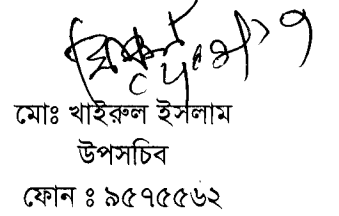 মোঃ খাইরুল ইসলাম
উপসচিব
ফোন ঃ ৯৫৭৫৫৬২